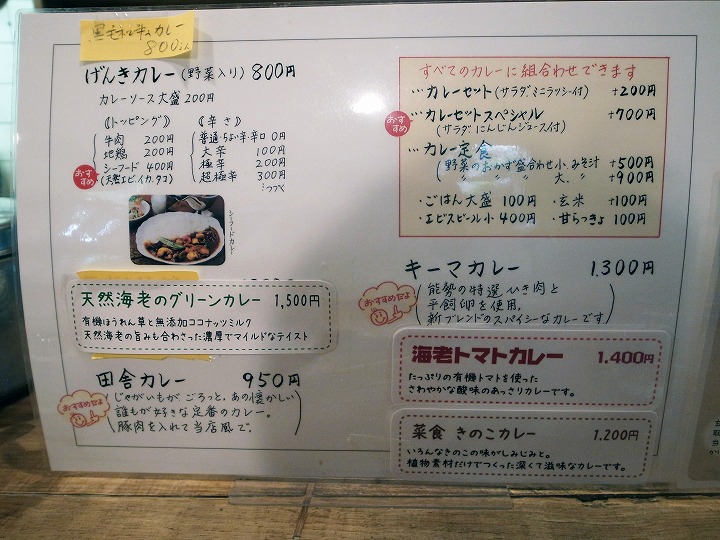 黒毛和牛カレー
800円
げんきカレー(野菜入り) 800円
カレーソース大盛 200円
《トッピング》
牛肉 200円
地鶏 200円
シーフード 400円
(天然エビ、イカ、タコ)
おすすめ
《辛さ》
普通・ちょい辛・辛口 0円
大辛 100円
極辛 200円
超極辛 300円
シーフードカレー
天然海老のグリーンカレー 1,500円
有機ほうれん草と無添加ココナッツミルク
天然海老の旨みも合わさった濃厚でマイルドなテイスト
田舎カレー 950円
おすすめだよ
じゃがいもがごろっと、あの懐かしい
誰もが好きな定番のカレー。
豚肉を入れて当店風で。
すべてのカレーに組合わせできます
…カレーセット(サラダ・ミニラッシー付) +200円
おすすめ
…カレーセットスペシャル +700円
(サラダ・にんじんジュース付)
…カレー定食
(野菜のおかず盛合わせ小、みそ汁 +500円
〃 大、 〃 +900円
・ごはん大盛 100円 ・玄米 +100円
・エビスビール小 400円 ・甘らっきょ 100円
キーマカレー 1,300円
おすすめだよ
能勢の特選ひき肉と
平飼卵を使用。
新ブレンドのスパイシーなカレーです
海老トマトカレー 1,400円
たっぷりの有機トマトを使った
さわやかな酸味のあっさりカレーです。
菜食 きのこカレー 1,200円
いろんなきのこの味がしみじみと。
植物素材だけでつくった深くて滋味なカレーです。